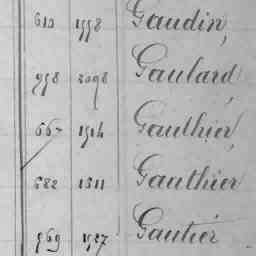 610 1558 Gaudin,
958 2098 Gaulard,
667 1514 Gaulhier,
682 1511 Gauthier
969 1527 Gautier